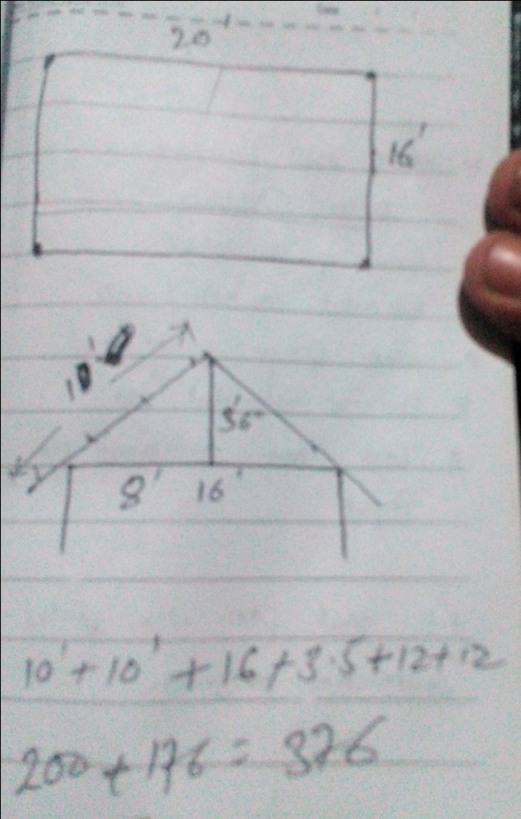 20
16'
10'
3'5"
8' 16'
10'+10'+16+3.5+12+12
200+176=376